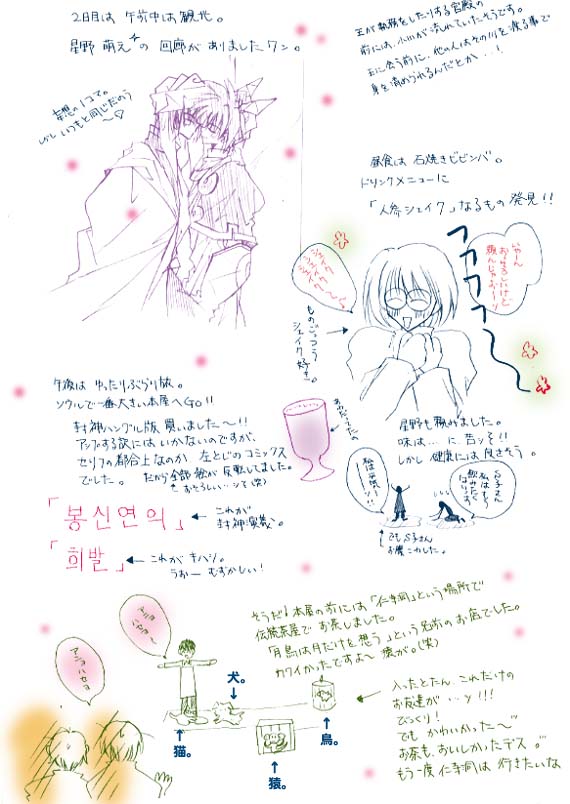 2日目は 午前中は観光。
星野 萌え の 回廊が ありましたワン。
妄想の1コマ。
しかしいつもと同じだのう
〜♡
王が執務をしたりする宮殿の
前には、小川が流れていたそうです。
王に会う前に、他の人はその川を渡る事で
身を清められるんだとか・・!
昼食は 石焼きビビンバ。
ドリンクメニューに
「人参シェイク」なるもの 発見!!
フフフフフ
ものごっつう
シェイク好き。
星野も頼みました。
味は…に、苦ッそ!!
しかし 健康には良さそう。
でもS子さん
お腹こわした。
午後は ゆったりぶらり旅。
ソウルで一番大きい本屋へGO!!
封神ハングル版 買いましたー!!
アップする訳にはいかないのですが、
セリフの都合上なのか 左とじのコミックス
でした。 だから全部絵が反転してました。
「봉신연의」 ← これが
封神演義。
「희발」 ← これが キハツ。
うおー むずかしい!
そうだ!本屋の前には「仁寺洞」という場所で
伝統茶屋で お茶しました。
「月鳥は月だけを想う」という名前のお店でした。
カワイかったですよ〜 猿が。(笑)
アンニョハセヨ
犬。
猫。
鳥。
猿。
入ったとたん これだけの
お友達が …ッ!!!
びっくり!
でも かわいかった〜
お茶も、おいしかったデス。
もう一度 仁寺洞は 行きたいな